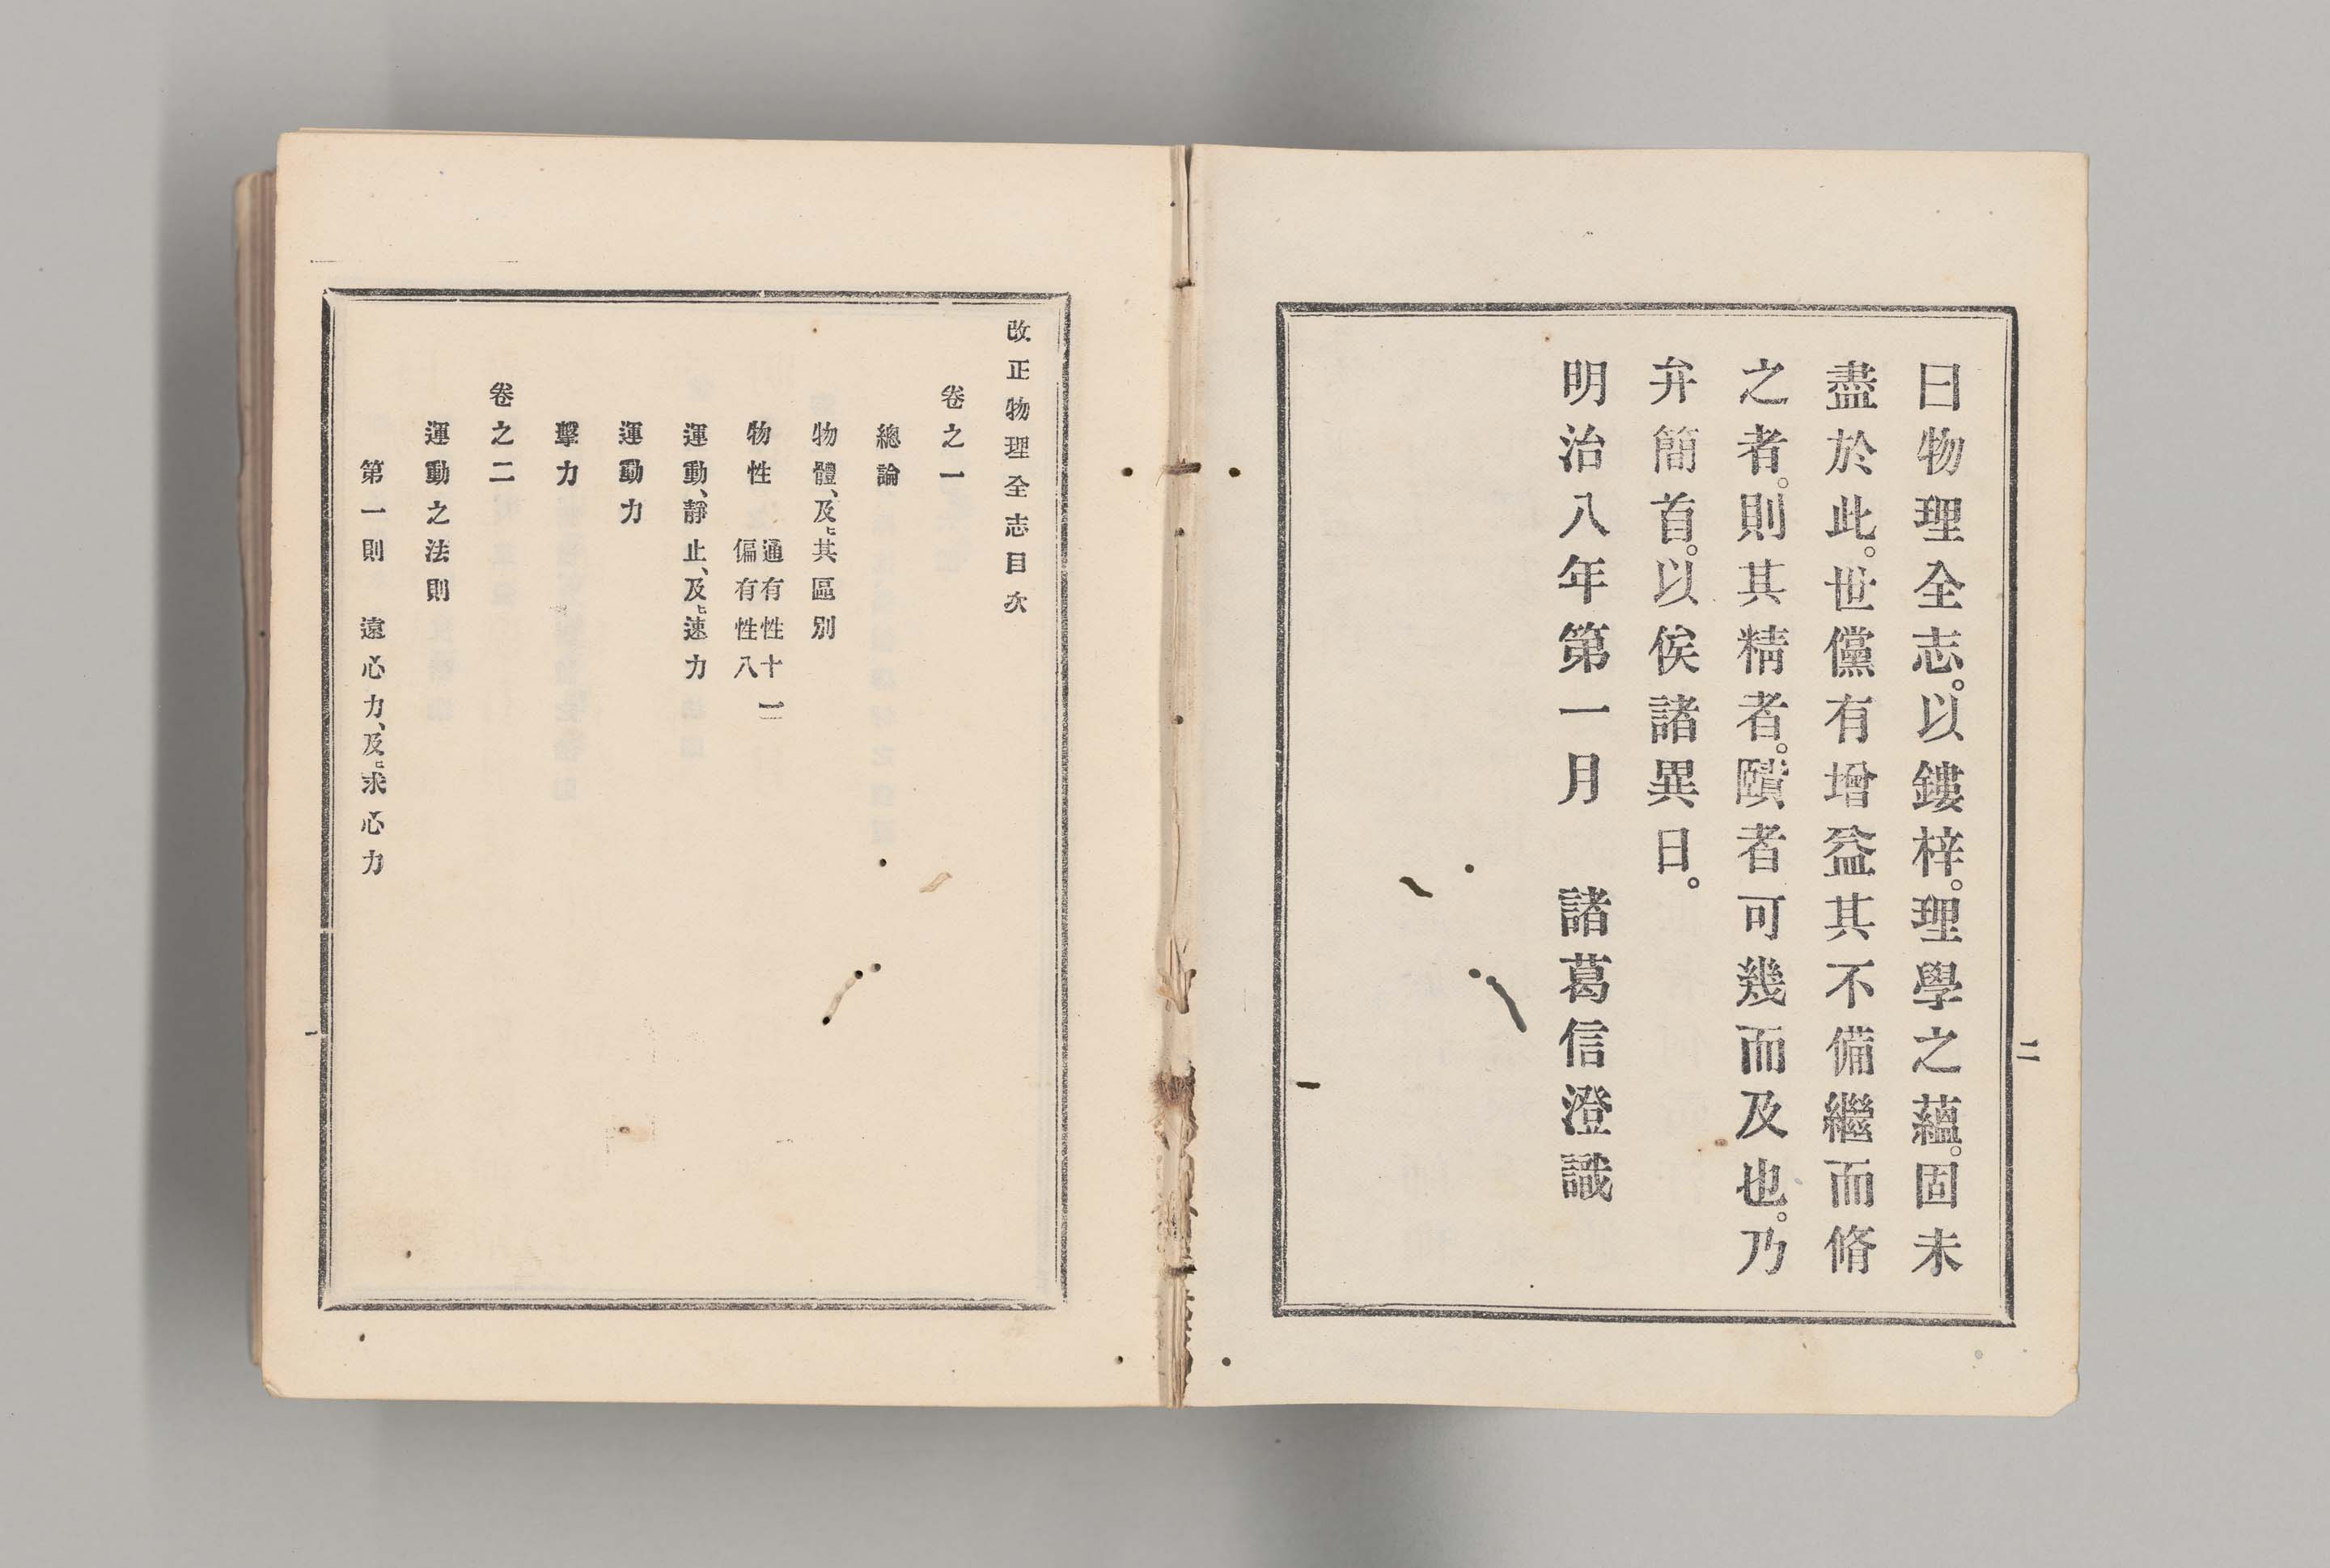 曰物理全志。以鏤梓。理學之蘊。固未
盡於此。世儻有增益其不備繼而脩
之者。則其精者。賾者可幾而及也。乃
弁簡首。以俟諸異日。
明治八年第一月　諸葛信澄識
二
改正物理全志目次
卷之一
總論
物體、及ヒ其區別
物性　通有性十一
偏有性八
運動、靜止、及ヒ速力
運動力
擊力
卷之二
運動之法則
第一則　遠心力、及ヒ求心力
一